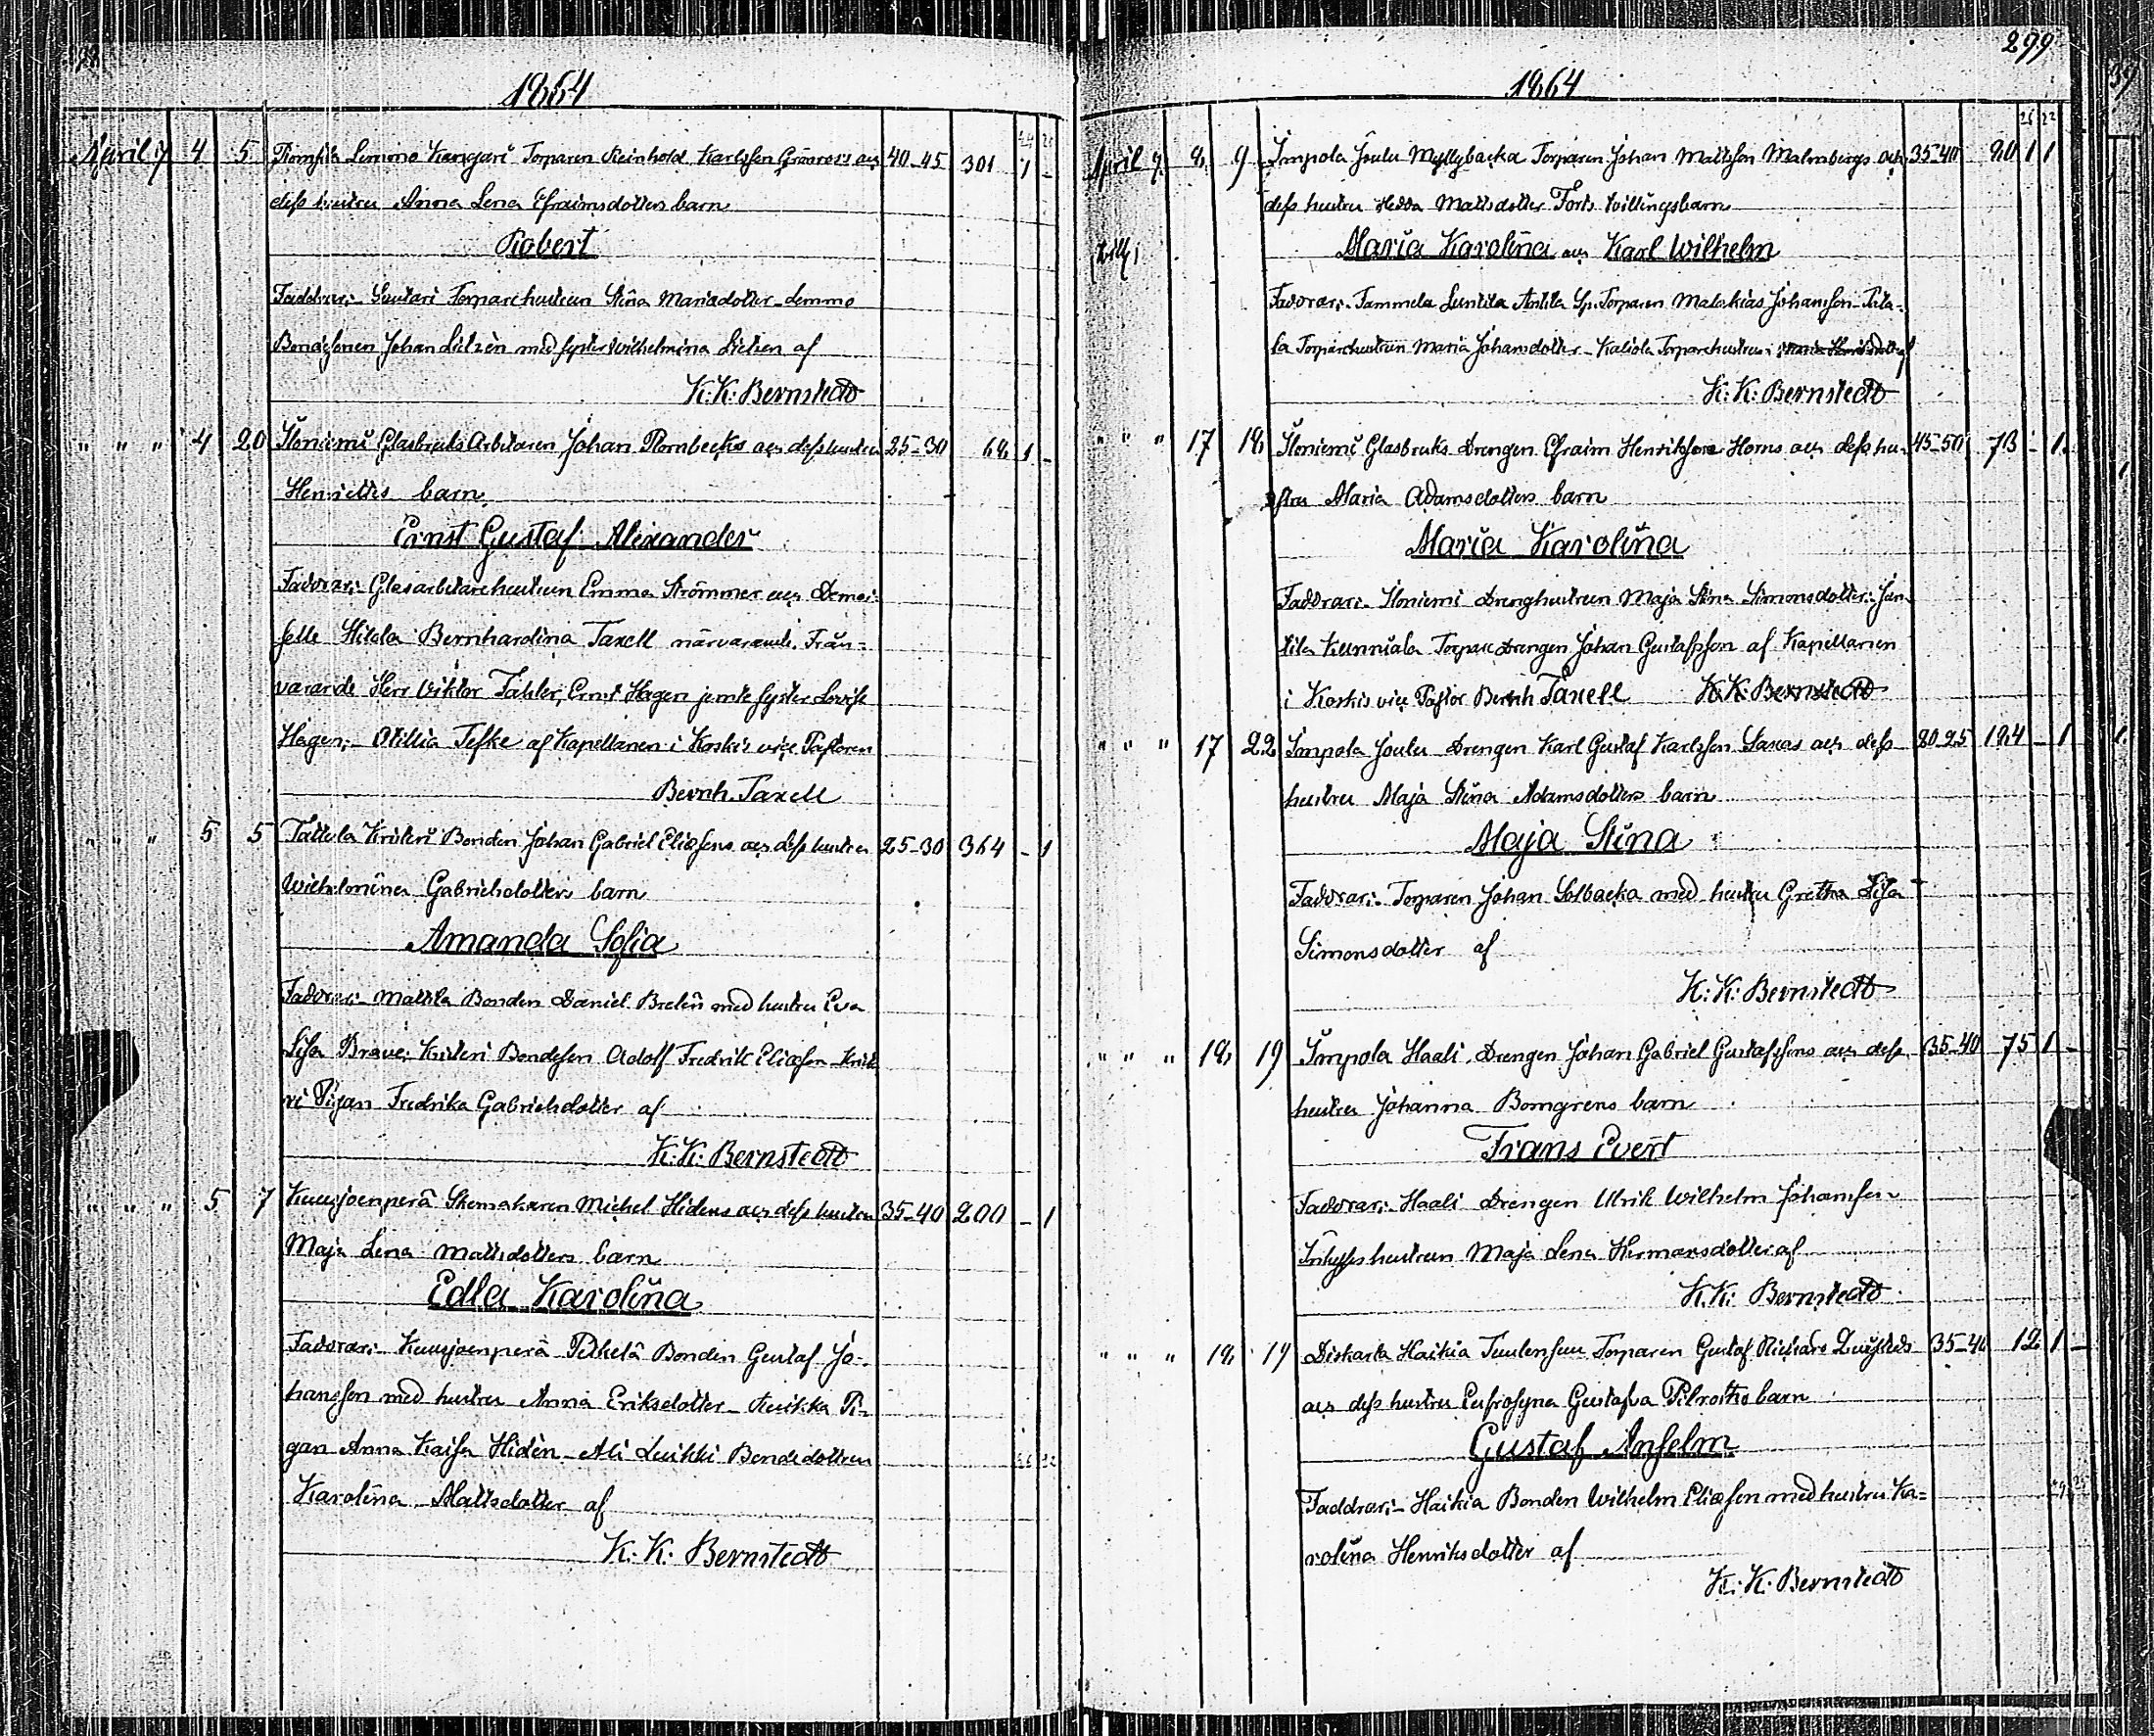 298
1864
April 4 5 Lemmo Kangari Torparen Reinhold Karlsson Grönroos och 40-45 301 1 -
dess hustru Anna Lena Efraimsdotters barn
Robert
Faddrar:- Suutari Torparehustrun Stina Mariadotter - Lemmo
Bondesonen Johan Litzén med syster Wilhelmina Litzen af
K: K: Bernstedt
" " " 4 20 Iloniemi Glasbruks Arbetaren Johan Rornbecks och dess hustru 25-30 68 1 -
Henriettes barn
Ernst Gustaf Alexander
Faddrar:- Glasarbetarehustrun Emma Strömmer och Demoi-
selle Hilda Bernhardina Taxell närvarande. Från-
varande Herr Viktor Tahler, Ernst Hagen jemte syster Lovisa
Hagen;- Otillia Tefke af Kapellanen i Koskis vice Pastoren
Bernh. Taxell
" " " 5 5 Tattula Krikeri Bonden Johan Gabriel Eliassons och dess hustru 25-30 364 - 1
Wilhelmina Gabrielsdotters barn
Amanda Sofia
Faddrar:- Mattila Bonden Daniel Brelin med hustru Eva
Lisa Brave; Bondeson Adolf Fredrik Eliasson
Pigan Fredrika Gabrielsdotter af
K: K: Bernstedt
" " " 5 7 Kuusjoenperä Skomakaren Michel Hidens och dess hustru 35-40 200 - 1
Maja Lena Mattsdotters barn
Edla Karolina
Faddrar:- Kuusjoenperä Pitkelä Bonden Gustaf Jo-
hansson med hustru Anna Eriksdotter - Pi-
gan Anna Kaisa Hidén - Ali Luikki Bondedottren
Karolina Mattsdotter af
K: K: Bernstedt
299
1864
April 8 9 Impola Joulu Myllybacka Torparen Johan Mattsson Malmbergs och 35-40 20 1 1
dess hustru Hedda Mattsdotter Forts tvillingsbarn
Maria Karolina och Karl Wilhelm
Faddrar:- Tammela Torparen Malakias Johansson
la Torparehustrun Maria Johansdotter - Kaliola Torparehustrun
K: K: Bernstedt
" " " 17 18 Iloniemi Glasbruks Drengen Efraim Henriksson Horns och dess hu- 45-50 73 - 1
stru Maria Adamsdotters barn
Maria Karolina
Faddrar:- Iloniemi Drenghustrun Maja Stina Simonsdotter:
Torpare Drengen Johan Gustafsson af Kapellanen
i Koskis vice Pastor Bernh Taxell K: K: Bernstedt
" " " 17 22 Impola Joulu Drengen Karl Gustaf Karlsson Saxas och dess 20-25 124 - 1
hustru Maja Stina Adamsdotters barn
Maja Stina
Faddrar:- Torparen Johan Solbacka med hustru Gretha Lisa
Simonsdotter af
K: K: Bernstedt
" " " 18 19 Impola Haali Drengen Johan Gabriel Gustafssons och dess 35-40 75 1 -
hustru Johanna Bomgrens barn
Frans Evert
Faddrar:- Haali Drengen Ulrik Wilhelm Johansson
Inhyses hustrun Maja Lena Hermansdotter af
K. K: Bernstedt
" " " 18 19 Haikia Torparen Gustaf Richard 35-40 12 1 -
och dess hustru Eufrosyna Gustafva barn
Gustaf Anselm
Faddrar:- Haikia Bonden Wilhelm Eliasson med hustru Ka-
rolina Henriksdotter af
K: K: Bernstedt